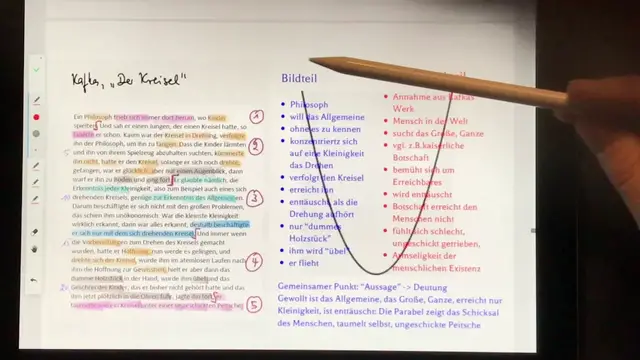 Kafka, „Der Kreisel"
Ein Philosoph trieb sich immer dort herum, wo Kinder
spielten. Und sah er einen Jungen, der einen Kreisel hatte, so
lauerte er schon. Kaum war der Kreisel in Drehung, verfolgte
ihn der Philosoph, um ihn zu fangen. Dass die Kinder lärmten
5 und ihn von ihrem Spielzeug abzuhalten suchten, kümmerte
ihn nicht, hatte er den Kreisel, solange er sich noch drehte,
gefangen, war er glücklich, aber nur einen Augenblick, dann
warf er ihn zu Boden und ging fort. Er glaubte nämlich, die
Erkenntnis jeder Kleinigkeit, also zum Beispiel auch eines sich
drehenden Kreisels, genüge zur Erkenntnis des Allgemeinen.
Darum beschäftigte er sich nicht mit den großen Problemen,
das schien ihm unökonomisch. War die kleinste Kleinigkeit
wirklich erkannt, dann war alles erkannt, deshalb beschäftigte
er sich nur mit dem sich drehenden Kreisel. Und immer wenn
die Vorbereitungen zum Drehen des Kreisels gemacht
wurden, hatte er Hoffnung, nun werde es gelingen, und
drehte sich der Kreisel, wurde ihm im atemlosen Laufen nach
ihm die Hoffnung zur Gewissheit, hielt er aber dann das
dumme Holzstück in der Hand, wurde ihm übel und das
Geschrei der Kinder, das er bisher nicht gehört hatte und das
ihm jetzt plötzlich in die Ohren fuhr, jagte ihn fort,
er taumelte wie ein Kreisel unter einer ungeschickten Peitsche.
1
2
3
4
5
Bildteil
• Philosoph
• will das Allgemeine
• ohne es zu kennen
• konzentriertz sich
auf eine Kleinigkeit
das Drehen
• verfolgt den Kreisel
• erreicht ihn
• enttäuscht, als die
Drehung aufhört
• nur "dummes
Holzstück"
• ihm wird "übel"
• er flieht
• Annahme aus Kafkas
Werk
• Mensch in der Welt
• sucht das Große, Ganze
• vgl. z.B.kaiserliche
Botschaft
• bemüht sich um
Erreichbares
• wird enttäuscht
• Botschaft erreicht den
Menschen nicht
• fühlt sich schlecht,
ungeschickt getrieben,
• Armseligkeit der
menschlichen Existenz
Gemeinsamer Punkt: "Aussage" -> Deutung
Gewollt ist das Allgemeine, das Große, Ganze, erreicht nur
Kleinigkeit, ist enttäuscht: Die Parabel zeigt das Schicksal
des Menschen, taumelt selbst, ungeschickte Peitsche